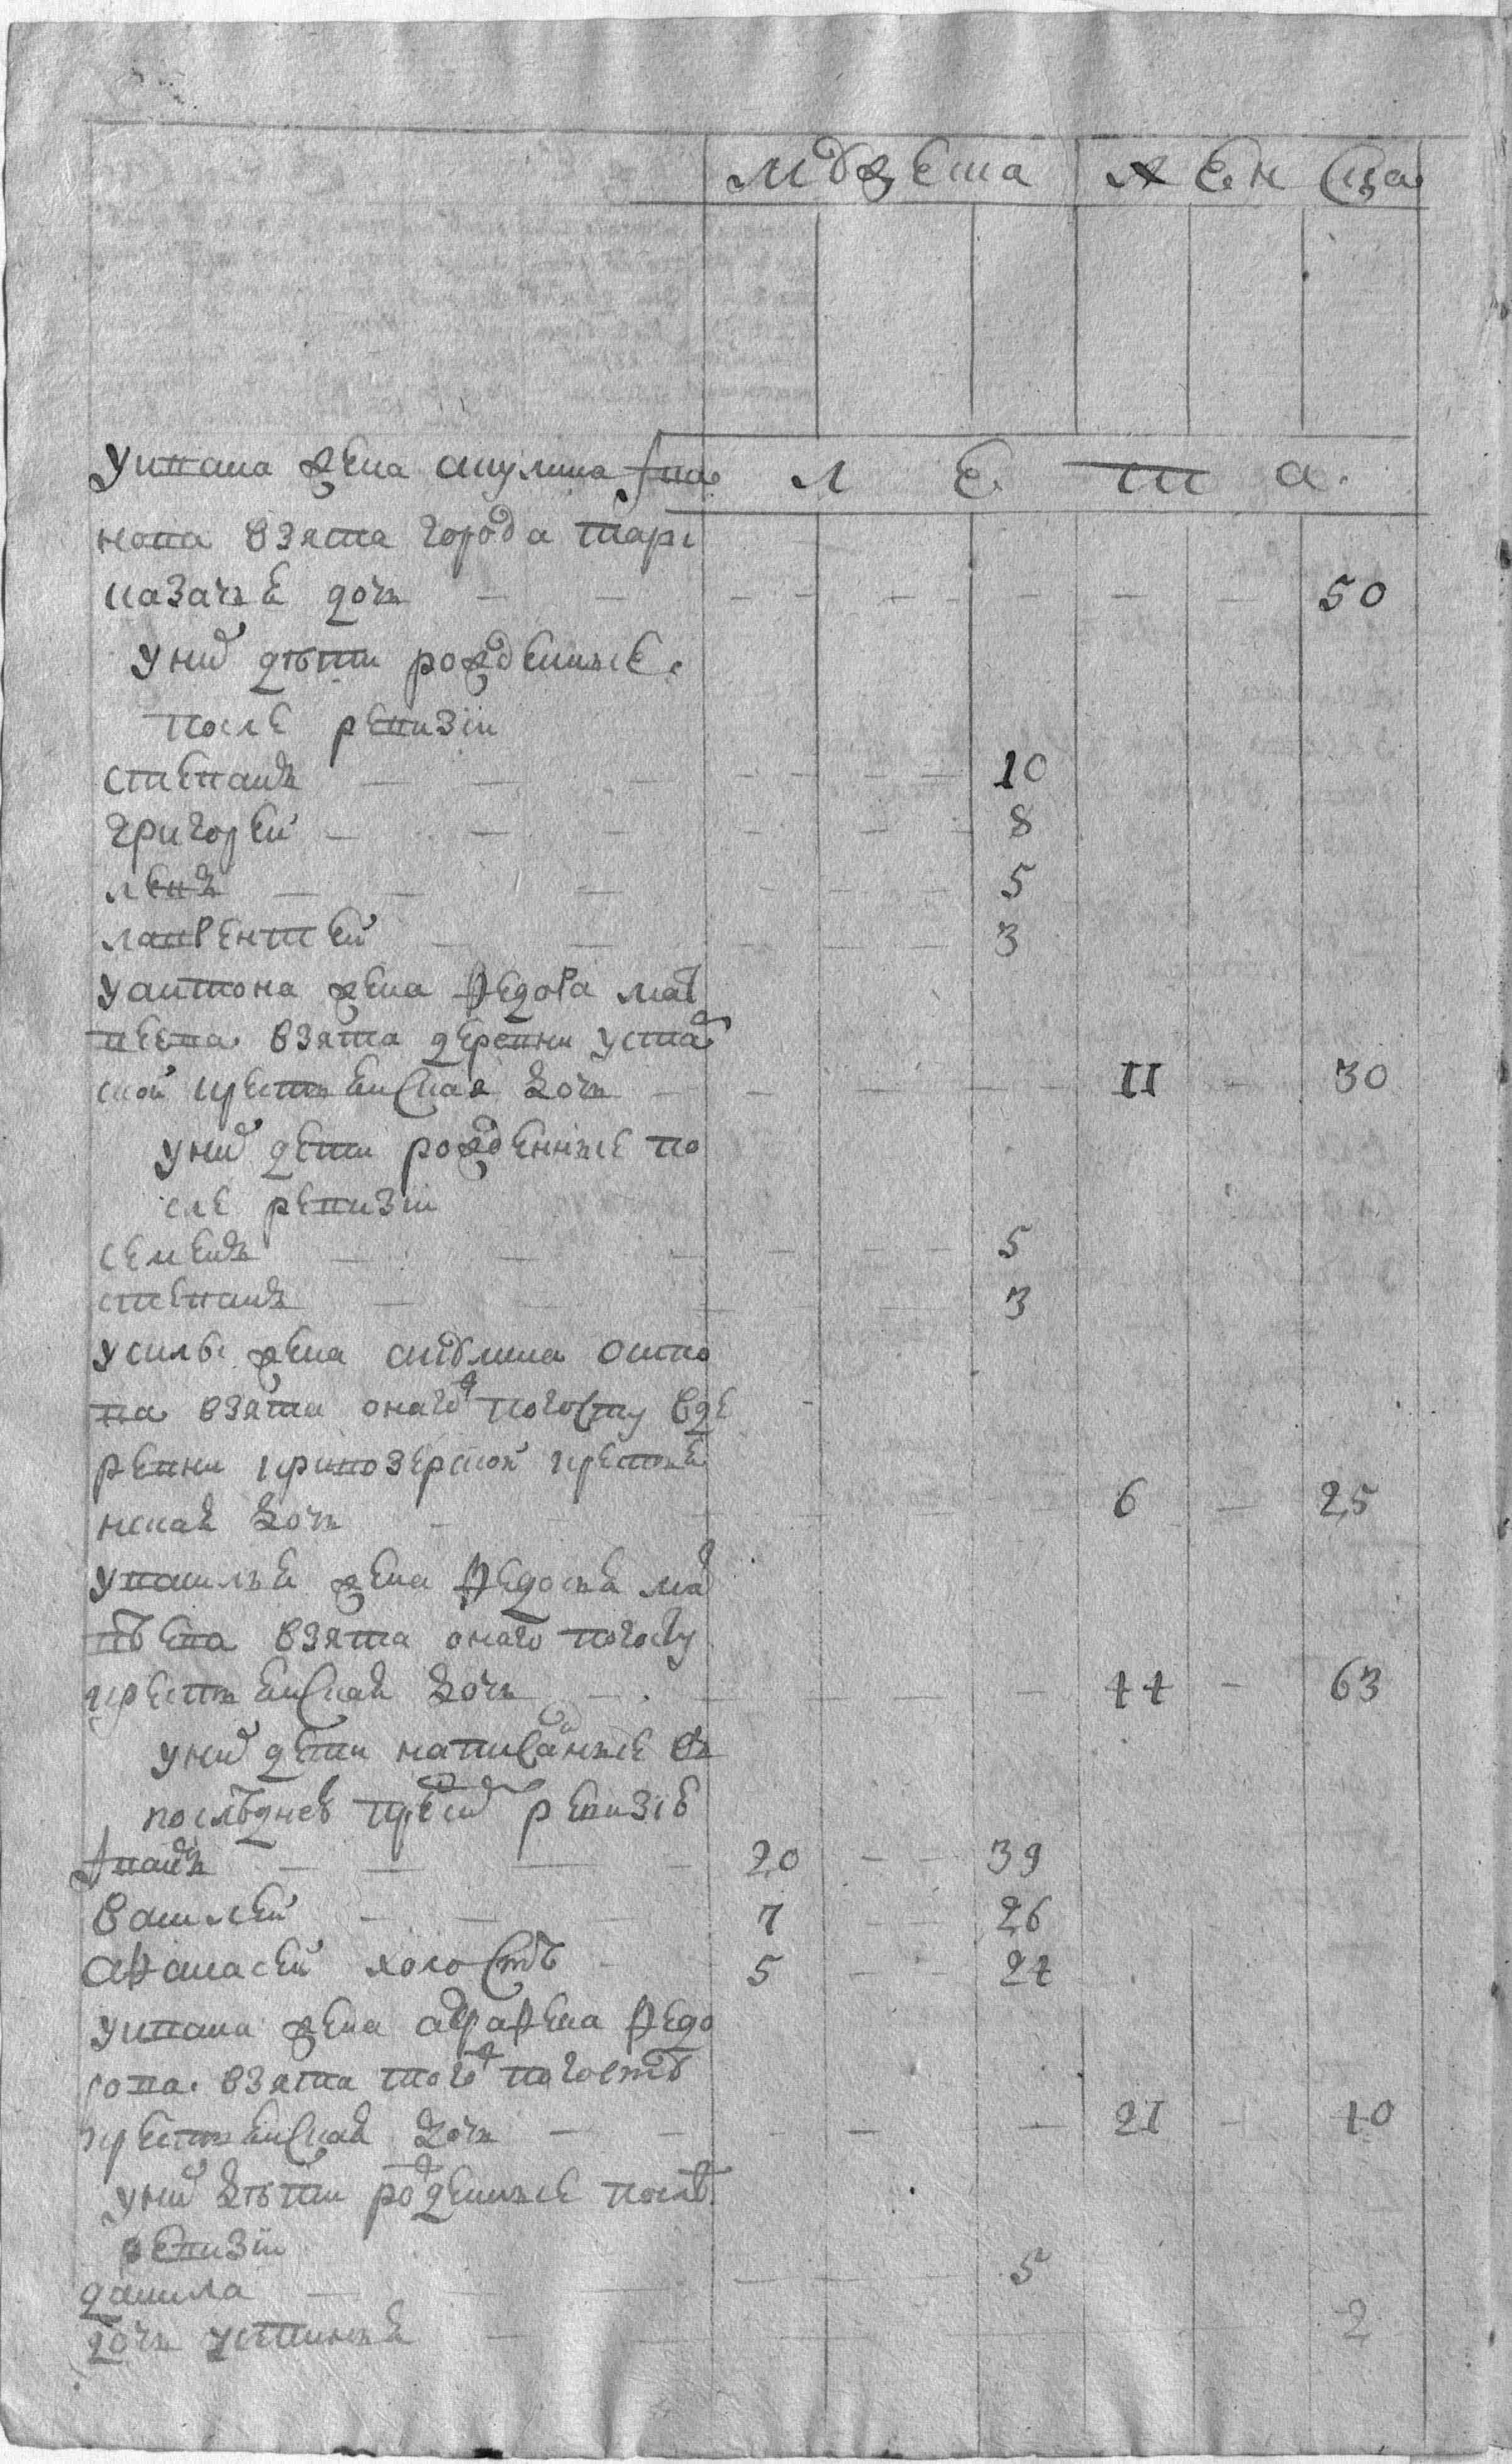 мужеска женска
л е т а
у ивана жена акулина ива
нова взята города тары
казачья дочь 50
у них дѣти рожденные
после ревизiи
степанъ 10
григорей 8
левъ 5
лаврентей 3
у антона жена федора мат
веева взята деревни
ской крестьенская дочь 11 30
у них дети рожденные по
сле ревизiи
семенъ 5
степанъ 3
у силы жена акулина осипо
ва взята оного погосту в де
ревни кривозерской крестье
нская дочь 6 25
у василья жена федосья ма
твѣева взята оного погосту
крестьенская дочь 44 63
у них дети написанные въ
последней пред сим ревизiе
иванъ 20 39
василей 7 26
афанасей холостъ 5 24
у ивана жена аграфена федо
рова взята того погоста
крестьенская дочь 21 40
у них дѣти рожденные послѣ
ревизiи
данила 5
дочь устинья 2